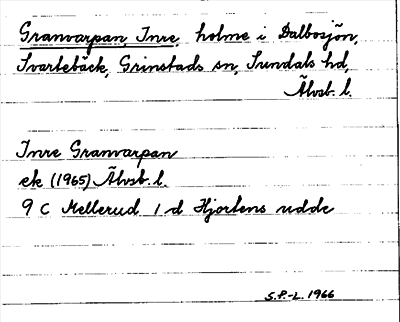 Granvarpan, Inre, holme i Dalbosjön,
Svartebäck, Grinstads sn, Sundals hd,
Älvsb. l.
Inre Granvarpan
ek (1965) Älvsb. l.
9 C Mellerud 1 d Hjortens udde
S.P.-L. 1966